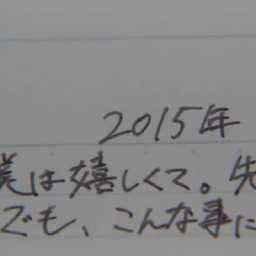 2015年
僕は嬉しくて。先
でも、こんな事に